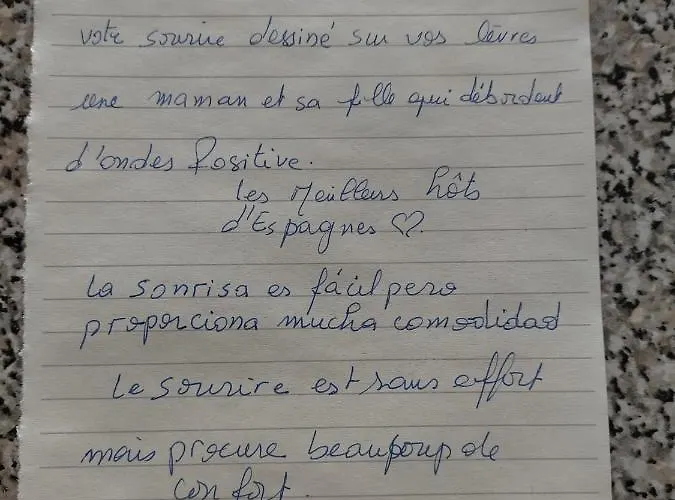 votre sourire dessiné sur vos lèvres
une maman et sa fille qui débordent
d'ondes Positive.
les Meilleurs hôts
d'Espagnes ♡.
La sonrisa es fácil pero
proporciona mucha comodidad
Le sourire est sans effort
mais procure beaucoup de
confort.